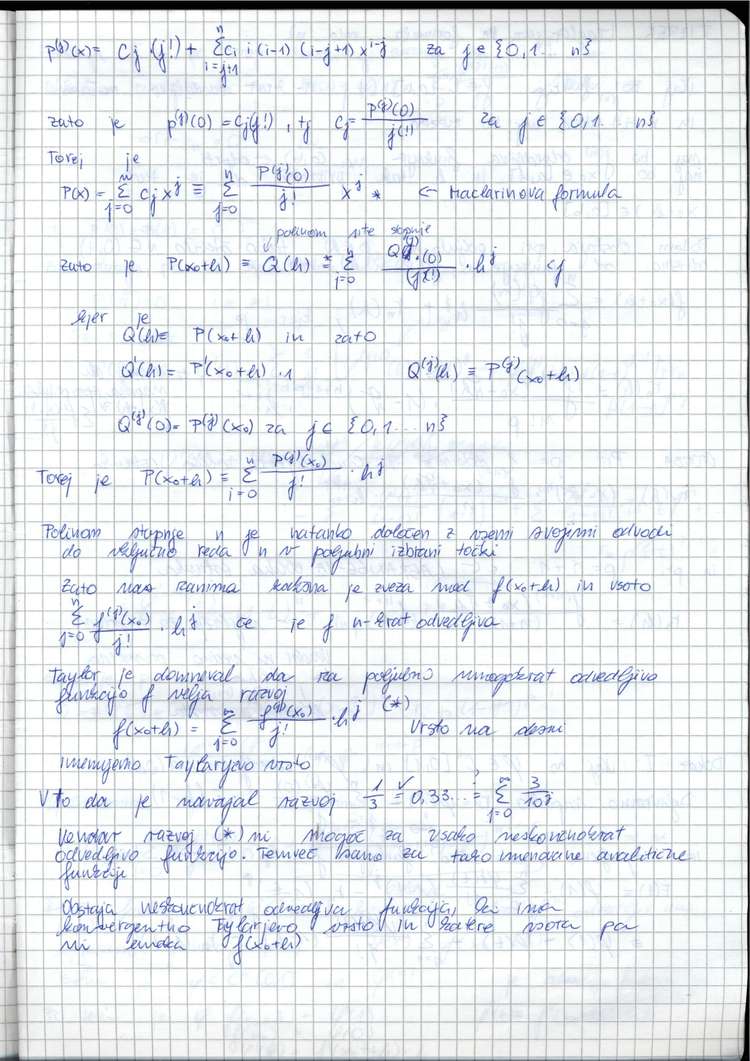 p^(j)(x) = c_j (j!) + Σ_{i=j+1}^{n} c_i i (i-1) (i-j+1) x^{i-j} za j ∈ {0,1... n}
zato je p^(j)(0) = c_j(j!), tj c_j = p^(j)(0) / j(!) za j ∈ {0,1... n}
Torej je
P(x) = Σ_{j=0}^{n} c_j x^j ≡ Σ_{j=0}^{n} P^(j)(0) / j! x^j * ← Maclarinova formula
polinom nte stopnje
zato je P(x₀+h) ≡ Q(h) ≡* Σ_{j=0}^{n} Q^(j)(0) / (j!) · h^j
kjer je
Q(h) ≡ P(x₀+h) in zato
Q'(h) = P'(x₀+h) · 1 Q^(j)(h) ≡ P^(j)(x₀+h)
Q^(j)(0) = P^(j)(x₀) za j ∈ {0,1... n}
Torej je P(x₀+h) ≡ Σ_{i=0}^{n} P^(j)(x₀) / j! · h^j
Polinom stopnje n je natanko določen z vsemi svojimi odvodi
do vključno reda n v poljubni izbrani točki
Zato nas zanima kakšna je zveza med f(x₀+h) in vsoto
Σ_{j=0}^{n} f^(j)(x₀) / j! · h^j če je f n-krat odvedljiva
Taylor je domneval da za poljubno mnogokrat odvedljivo
funkcijo f velja razvoj
f(x₀+h) = Σ_{j=0}^{∞} f^(j)(x₀) / j! · h^j (*) Vrsto na desni
imenujemo Taylarjevo vrsto
V to da je navajal razvoj 1/3 =✓ 0,33... =? Σ_{j=0}^{∞} 3/10^j
Vendar razvoj (*) ni mogoč za vsako neskončnokrat
odvedljivo funkcijo. Temveč samo za tako imenovane analitične
funkcije
Obstaja neskončnokrat odvedljiva funkcija, ki ima
konvergentno Taylarjevo vrsto in katere vsota pa
ni enaka f(x₀+h)